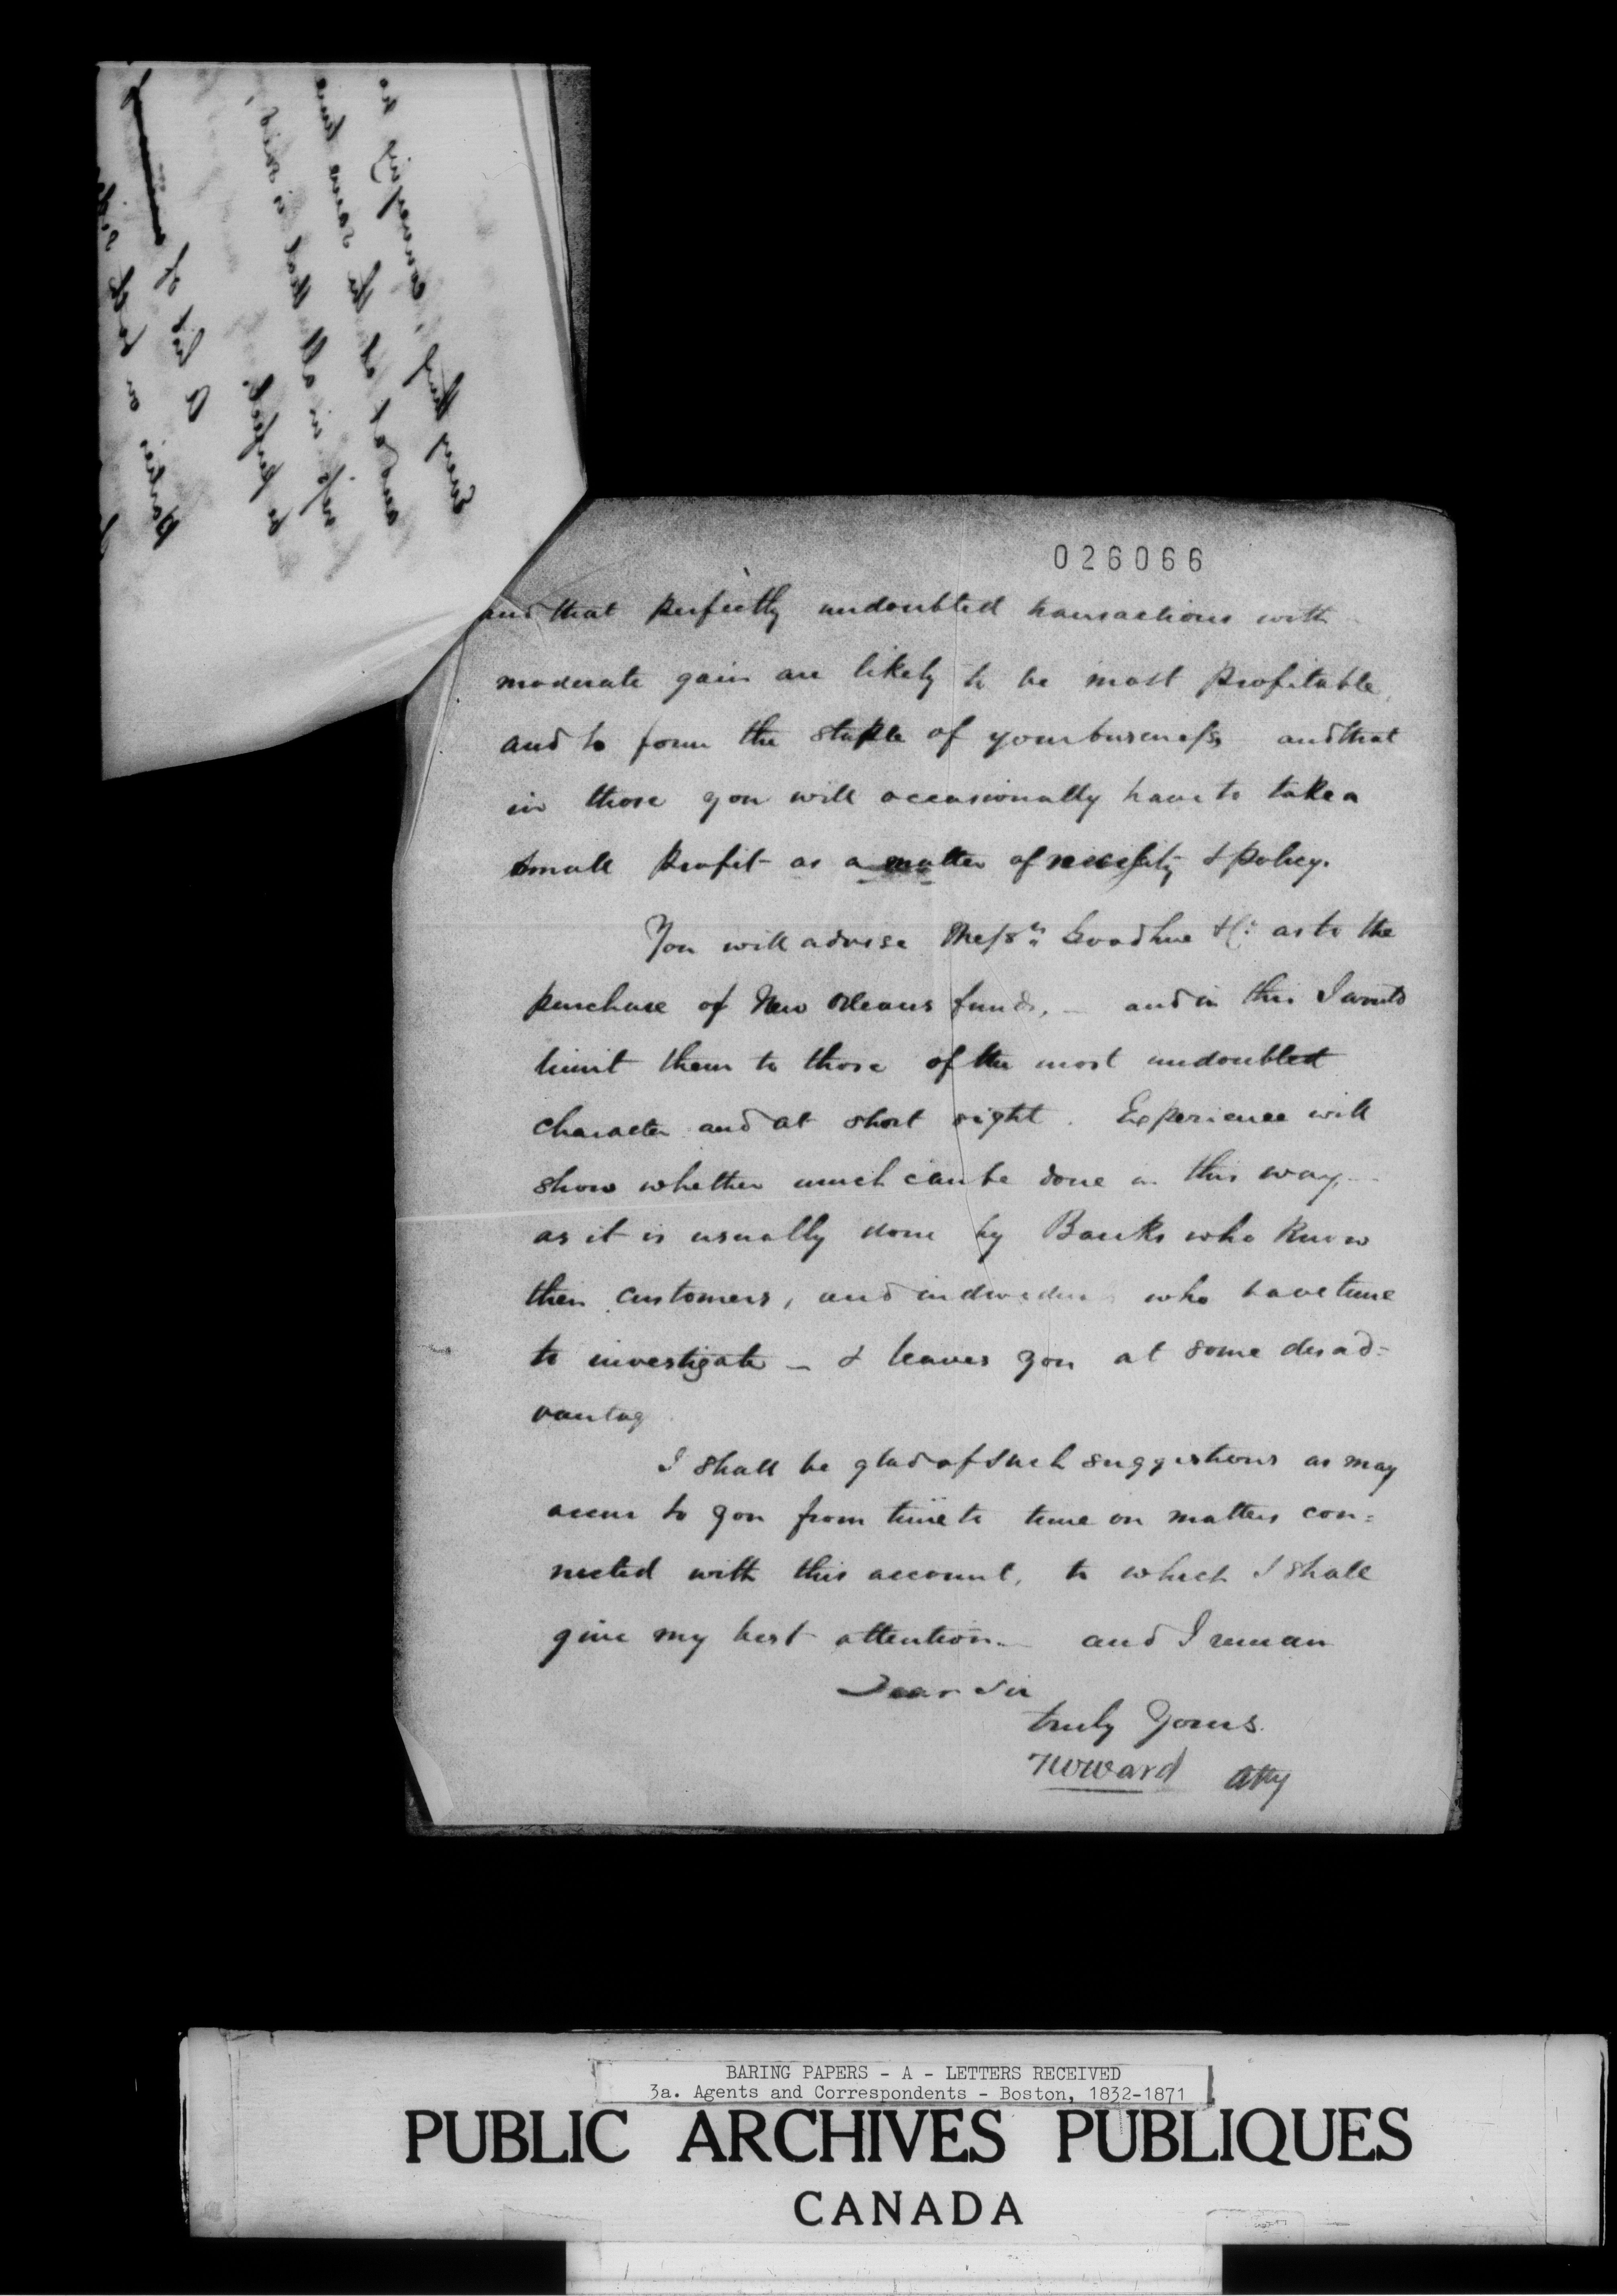 026066
and that perfectly undoubted transactions with
moderate gain are likely to be most profitable,
and to form the staple of your business and that
in those you will occasionally have to take a
small profit as a matter of necessity & policy.
You will advise Messrs Goodhue & Co as to the
purchase of New Orleans funds, — and in this I would
limit them to those of the most undoubted
character and at short sight. Experience will
show whether much can be done in this way,
as it is usually done by Banks who know
their customers, and individuals who have time
to investigate — & leaves you at some disad-
vantag
I shall be glad of such suggestions as may
occur to you from time to time on matters con=
nected with this account, to which I shall
give my best attention. — and I remain
Dear Sir
truly Yours.
TWWard Atty
BARING PAPERS - A - LETTERS RECEIVED
3a. Agents and Correspondents - Boston, 1832-1871
PUBLIC ARCHIVES PUBLIQUES
CANADA